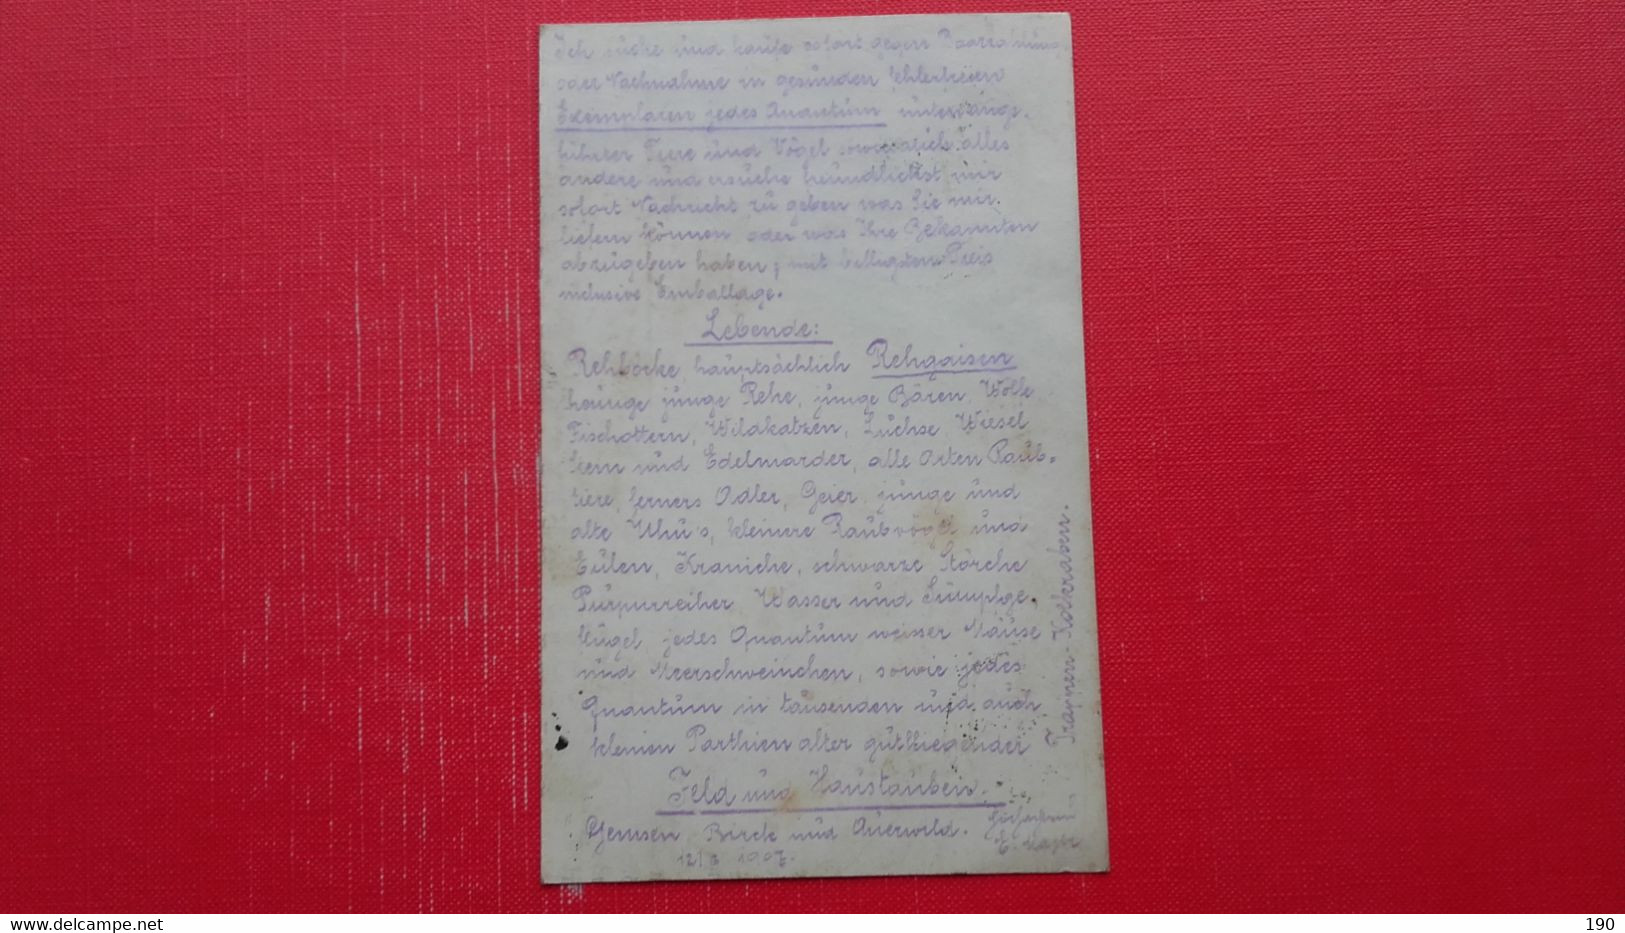 Ich suche und kaufe sofort gegen Baarzahlung
oder Nachnahme in gesunden fehlerfreien
Exemplaren jedes Quantum unten ange-
führter Tiere und Vögel sowie auch alles
andere und ersuche freundlichst mir
sofort Nachricht zu geben was Sie mir
liefern können oder was Ihre Bekannten
abzugeben haben, mit billigsten Preis
inclusive Emballage.
Lebende:
Rehböcke hauptsächlich Rehgaisen
heurige junge Rehe, junge Bären, Wölfe
Fischottern, Wildkatzen, Luchse, Wiesel
Stein und Edelmarder, alle Arten Raub-
tiere, ferners Adler, Geier, junge und
alte Uhu's, kleinere Raubvögel und
Eulen, Kraniche, schwarze Störche
Purpurreiher Wasser und Sumpfge-
flügel, jedes Quantum weisser Mäuse
und Meerschweinchen, sowie jedes
Quantum in tausenden und auch
kleinen Parthien alter gutfliegender
Feld und Haustauben.
Gemsen, Birck und Auerwild.
1907.
Trappen-Kolkraben.
190